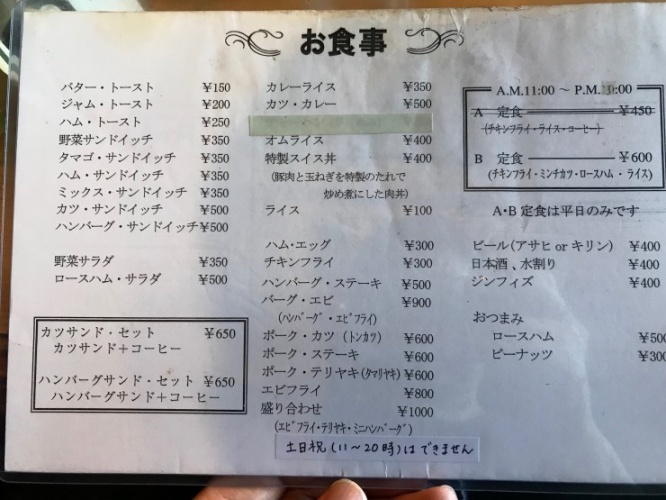 お食事
バター・トースト ¥150
ジャム・トースト ¥200
ハム・トースト ¥250
野菜サンドイッチ ¥350
タマゴ・サンドイッチ ¥350
ハム・サンドイッチ ¥350
ミックス・サンドイッチ ¥350
カツ・サンドイッチ ¥500
ハンバーグ・サンドイッチ ¥500
野菜サラダ ¥350
ロースハム・サラダ ¥500
カツサンド・セット ¥650
カツサンド＋コーヒー
ハンバーグサンド・セット ¥650
ハンバーグサンド＋コーヒー
カレーライス ¥350
カツ・カレー ¥500
オムライス ¥400
特製スイス丼 ¥400
(豚肉と玉ねぎを特製のたれで
炒め煮にした肉丼)
ライス ¥100
ハム・エッグ ¥300
チキンフライ ¥300
ハンバーグ・ステーキ ¥500
バーグ・エビ ¥900
(ハンバーグ・エビフライ)
ポーク・カツ (トンカツ) ¥600
ポーク・ステーキ ¥600
ポーク・テリヤキ(タマリヤキ) ¥600
エビフライ ¥800
盛り合わせ ¥1000
(エビフライ・テリヤキ・ミニハンバーグ)
土日祝(11～20時)はできません
A.M.11:00 ～ P.M. :00
A 定食 ¥450
(チキンフライ・ライス・コーヒー)
B 定食 ¥600
(チキンフライ・ミンチカツ・ロースハム・ライス)
A・B 定食は平日のみです
ビール(アサヒ or キリン) ¥400
日本酒、水割り ¥400
ジンフィズ ¥400
おつまみ
ロースハム ¥500
ピーナッツ ¥300